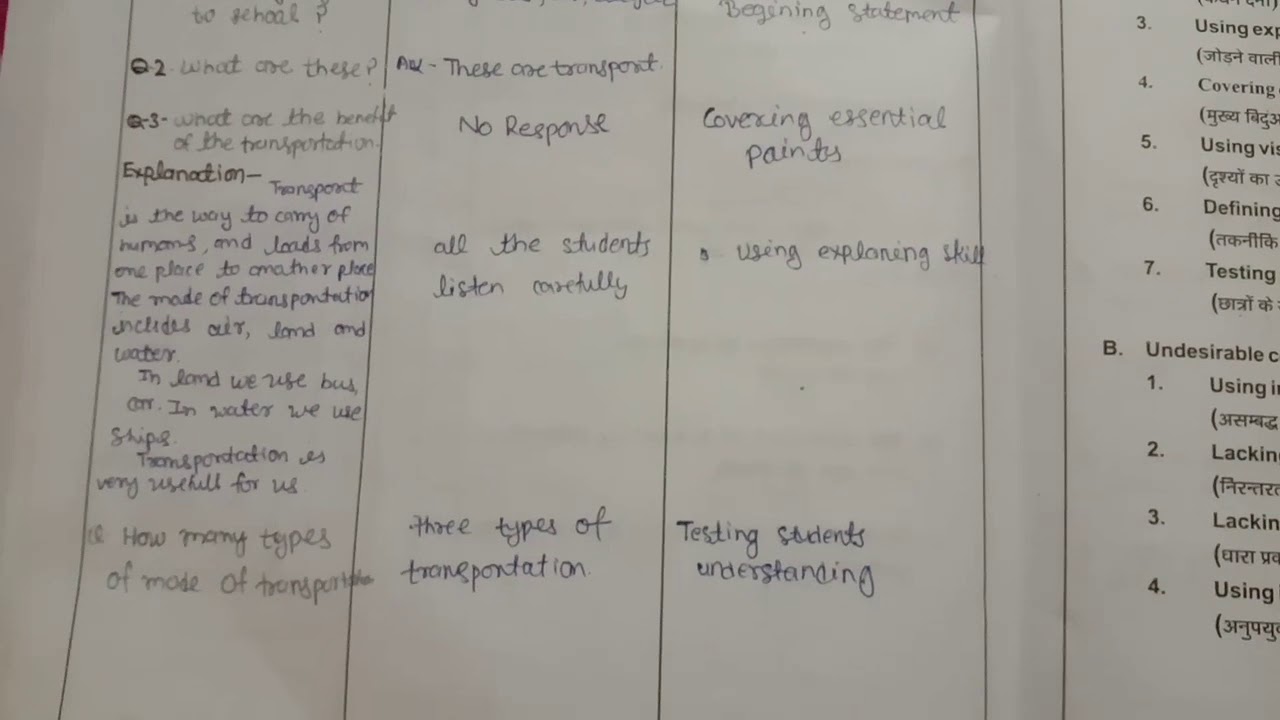 to school ?
Begening statement
Q.2. What are these?
Ans - These are transport.
Q-3- what are the benefit
of the transportation.
No Response
Covering essential
paints
Explanation- Transport
is the way to carry of
humans, and loads from
one place to another place
The mode of transportation
includes air, land and
water.
In land we use bus,
car. In water we use
ships.
Transportation is
very usefull for us.
all the students
listen carefully
using explaning skill
How many types
of mode of transportation
three types of
transportation.
Testing students
understanding
3. Using exp
(जोड़ने वाली
4. Covering
(मुख्य बिदुंअ
5. Using vis
(दृश्यों का उ
6. Defining
(तकनीकि
7. Testing
(छात्रों के
B. Undesirable c
1. Using i
(असम्बद्ध
2. Lackin
(निरन्तरत
3. Lackin
(धारा प्रव
4. Using
(अनुपयु